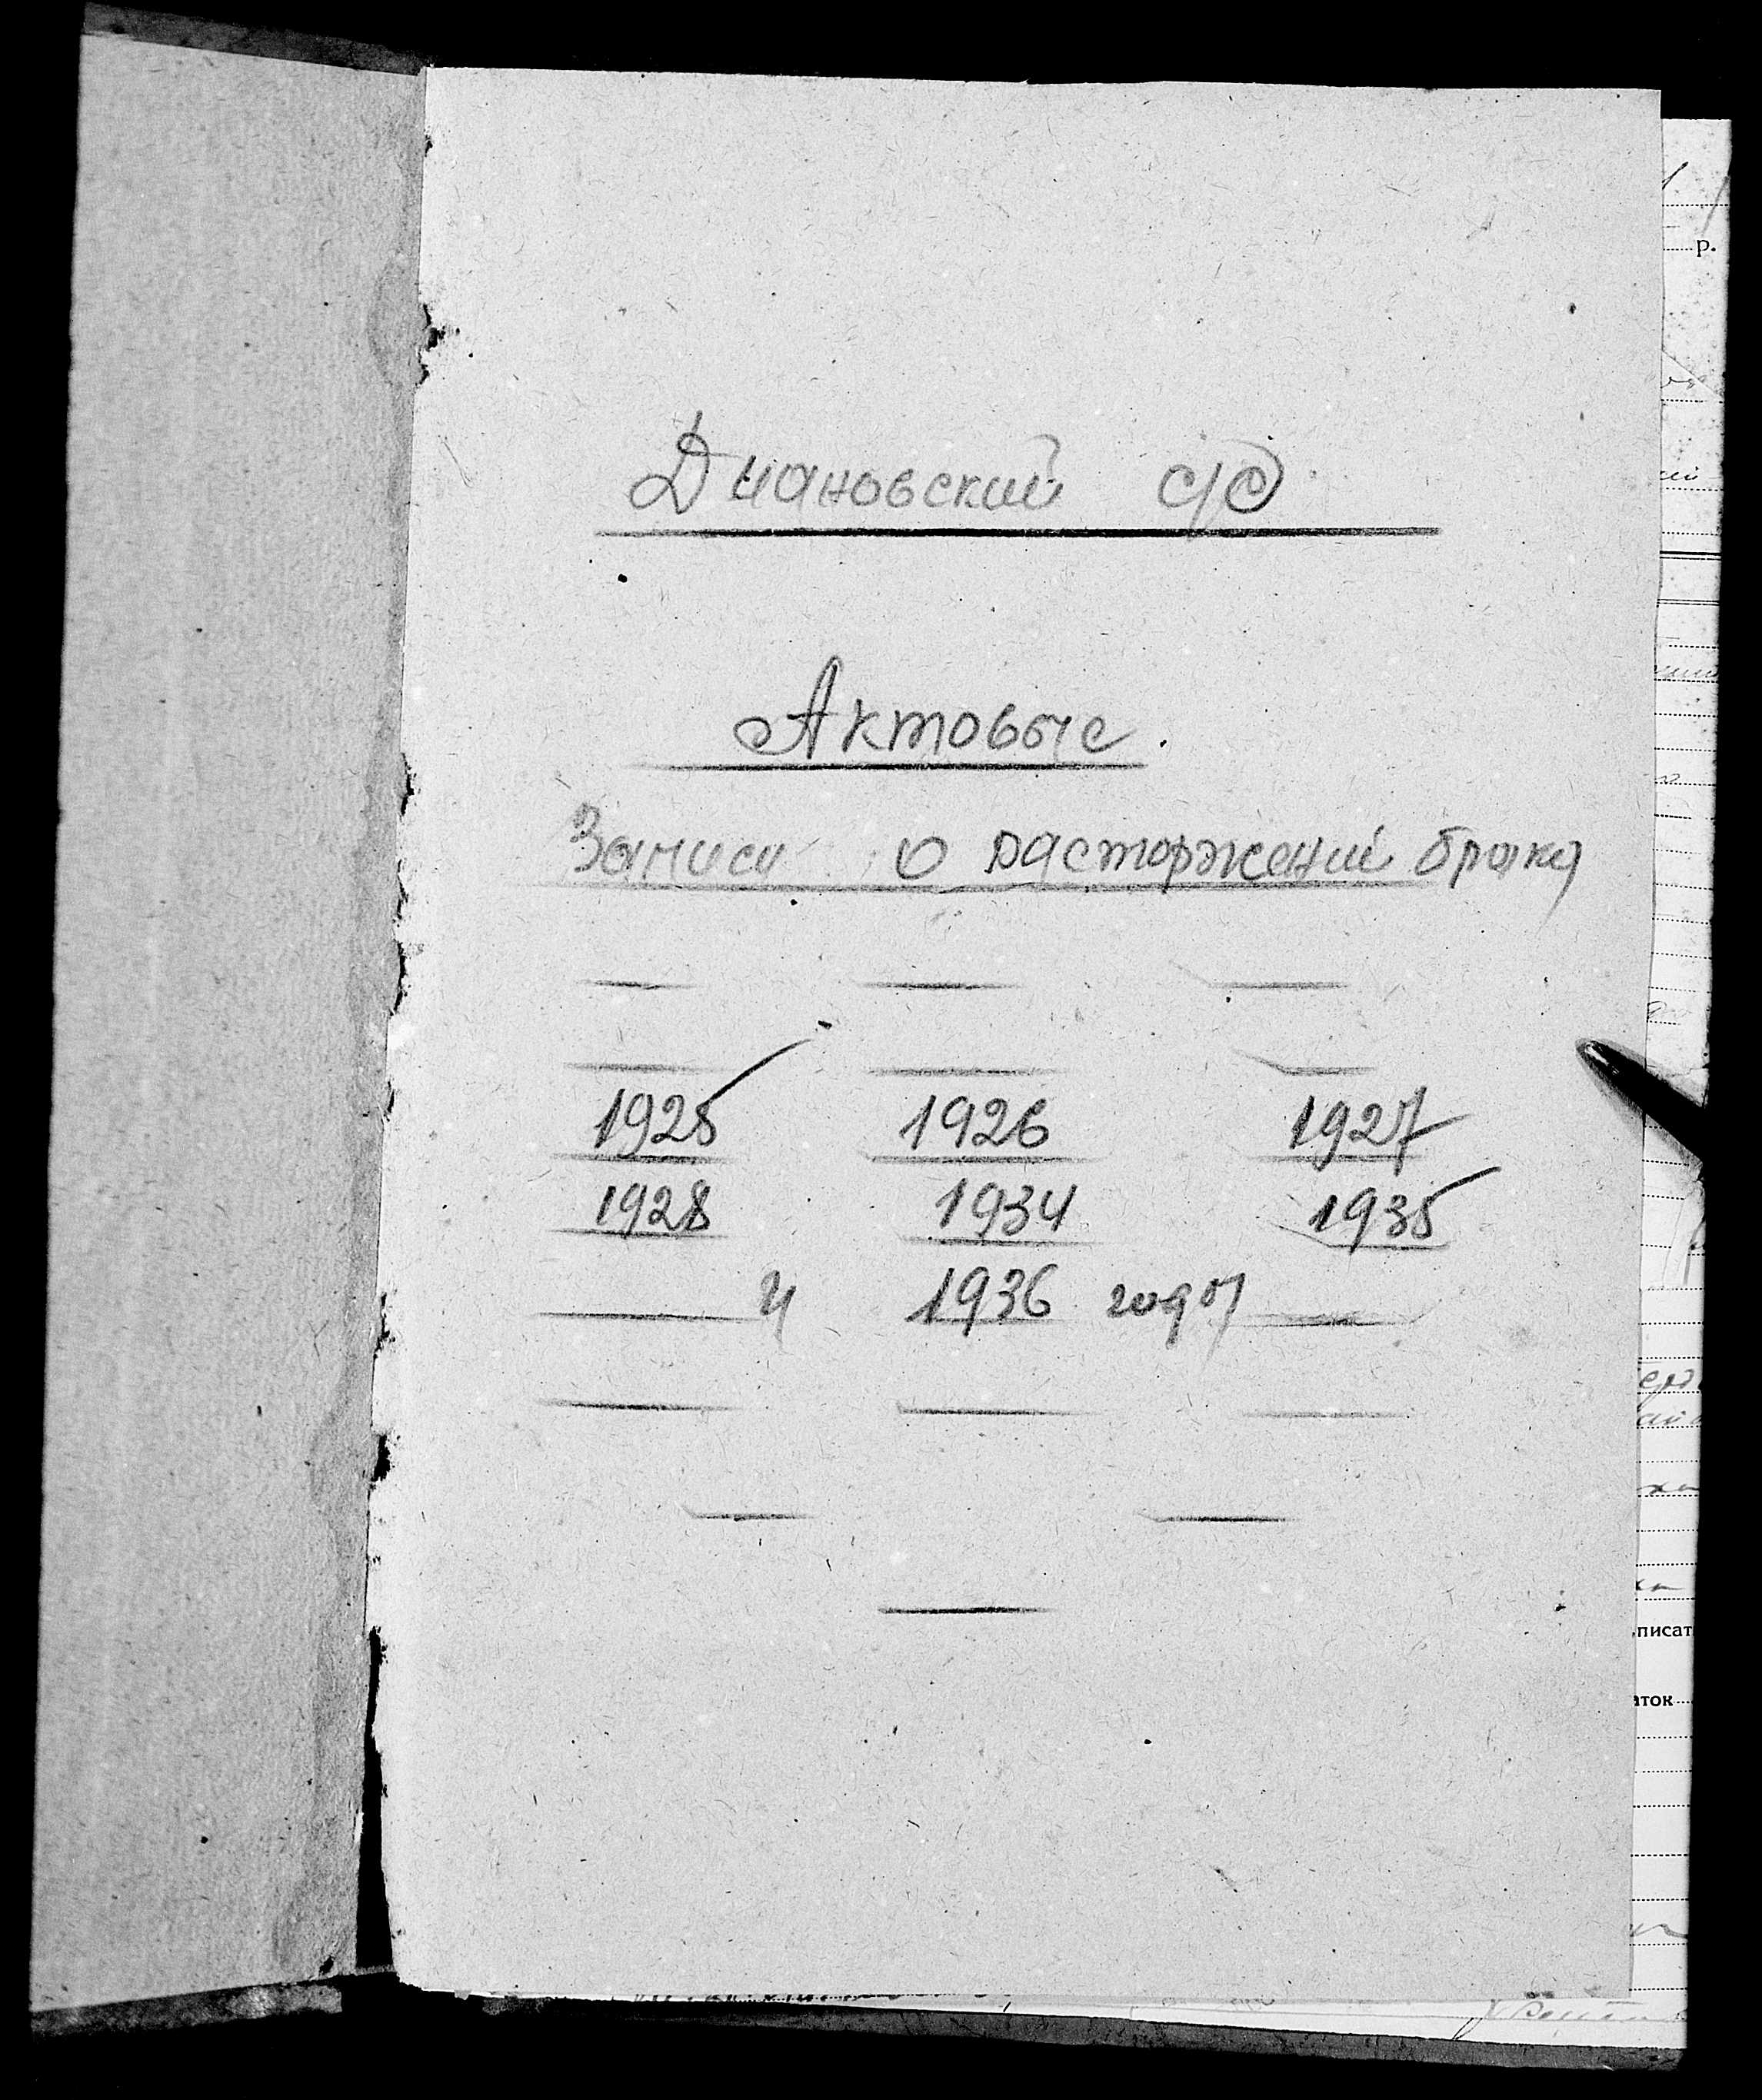 Диановский с/с
Актовые.
Записи о расторжений брака
1925 1926 1927
1928 1934 1935
и 1936 годы
р.
писат
аток